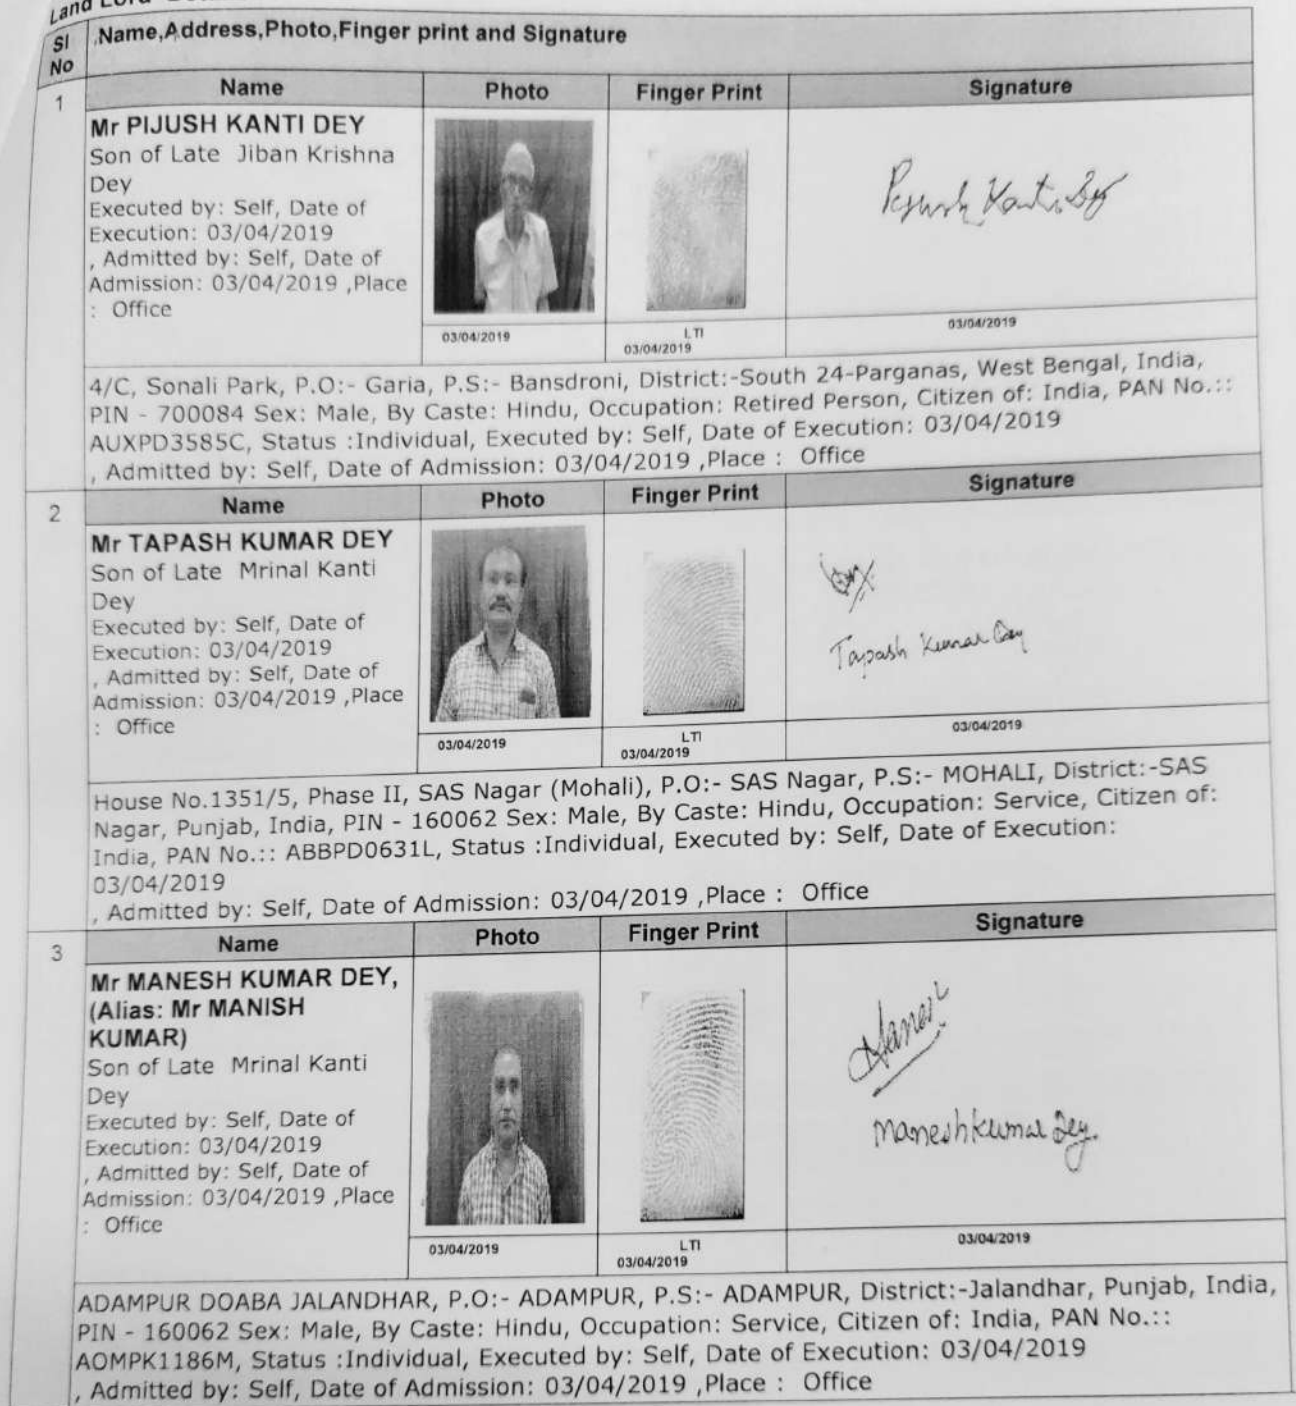 Land Lord
Sl No
,Name,Address,Photo,Finger print and Signature
1
Name
Photo
Finger Print
Signature
Mr PIJUSH KANTI DEY
Son of Late Jiban Krishna
Dey
Executed by: Self, Date of
Execution: 03/04/2019
, Admitted by: Self, Date of
Admission: 03/04/2019 ,Place
: Office
Kanti Dey
03/04/2019
LTI
03/04/2019
03/04/2019
4/C, Sonali Park, P.O:- Garia, P.S:- Bansdroni, District:-South 24-Parganas, West Bengal, India,
PIN - 700084 Sex: Male, By Caste: Hindu, Occupation: Retired Person, Citizen of: India, PAN No.::
AUXPD3585C, Status :Individual, Executed by: Self, Date of Execution: 03/04/2019
, Admitted by: Self, Date of Admission: 03/04/2019 ,Place : Office
2
Name
Photo
Finger Print
Signature
Mr TAPASH KUMAR DEY
Son of Late Mrinal Kanti
Dey
Executed by: Self, Date of
Execution: 03/04/2019
, Admitted by: Self, Date of
Admission: 03/04/2019 ,Place
: Office
Tapash Kumar Dey
03/04/2019
LTI
03/04/2019
03/04/2019
House No.1351/5, Phase II, SAS Nagar (Mohali), P.O:- SAS Nagar, P.S:- MOHALI, District:-SAS
Nagar, Punjab, India, PIN - 160062 Sex: Male, By Caste: Hindu, Occupation: Service, Citizen of:
India, PAN No.:: ABBPD0631L, Status :Individual, Executed by: Self, Date of Execution:
03/04/2019
, Admitted by: Self, Date of Admission: 03/04/2019 ,Place : Office
3
Name
Photo
Finger Print
Signature
Mr MANESH KUMAR DEY,
(Alias: Mr MANISH
KUMAR)
Son of Late Mrinal Kanti
Dey
Executed by: Self, Date of
Execution: 03/04/2019
, Admitted by: Self, Date of
Admission: 03/04/2019 ,Place
: Office
Manesh
Manesh kumar Dey.
03/04/2019
LTI
03/04/2019
03/04/2019
ADAMPUR DOABA JALANDHAR, P.O:- ADAMPUR, P.S:- ADAMPUR, District:-Jalandhar, Punjab, India,
PIN - 160062 Sex: Male, By Caste: Hindu, Occupation: Service, Citizen of: India, PAN No.::
AOMPK1186M, Status :Individual, Executed by: Self, Date of Execution: 03/04/2019
, Admitted by: Self, Date of Admission: 03/04/2019 ,Place : Office